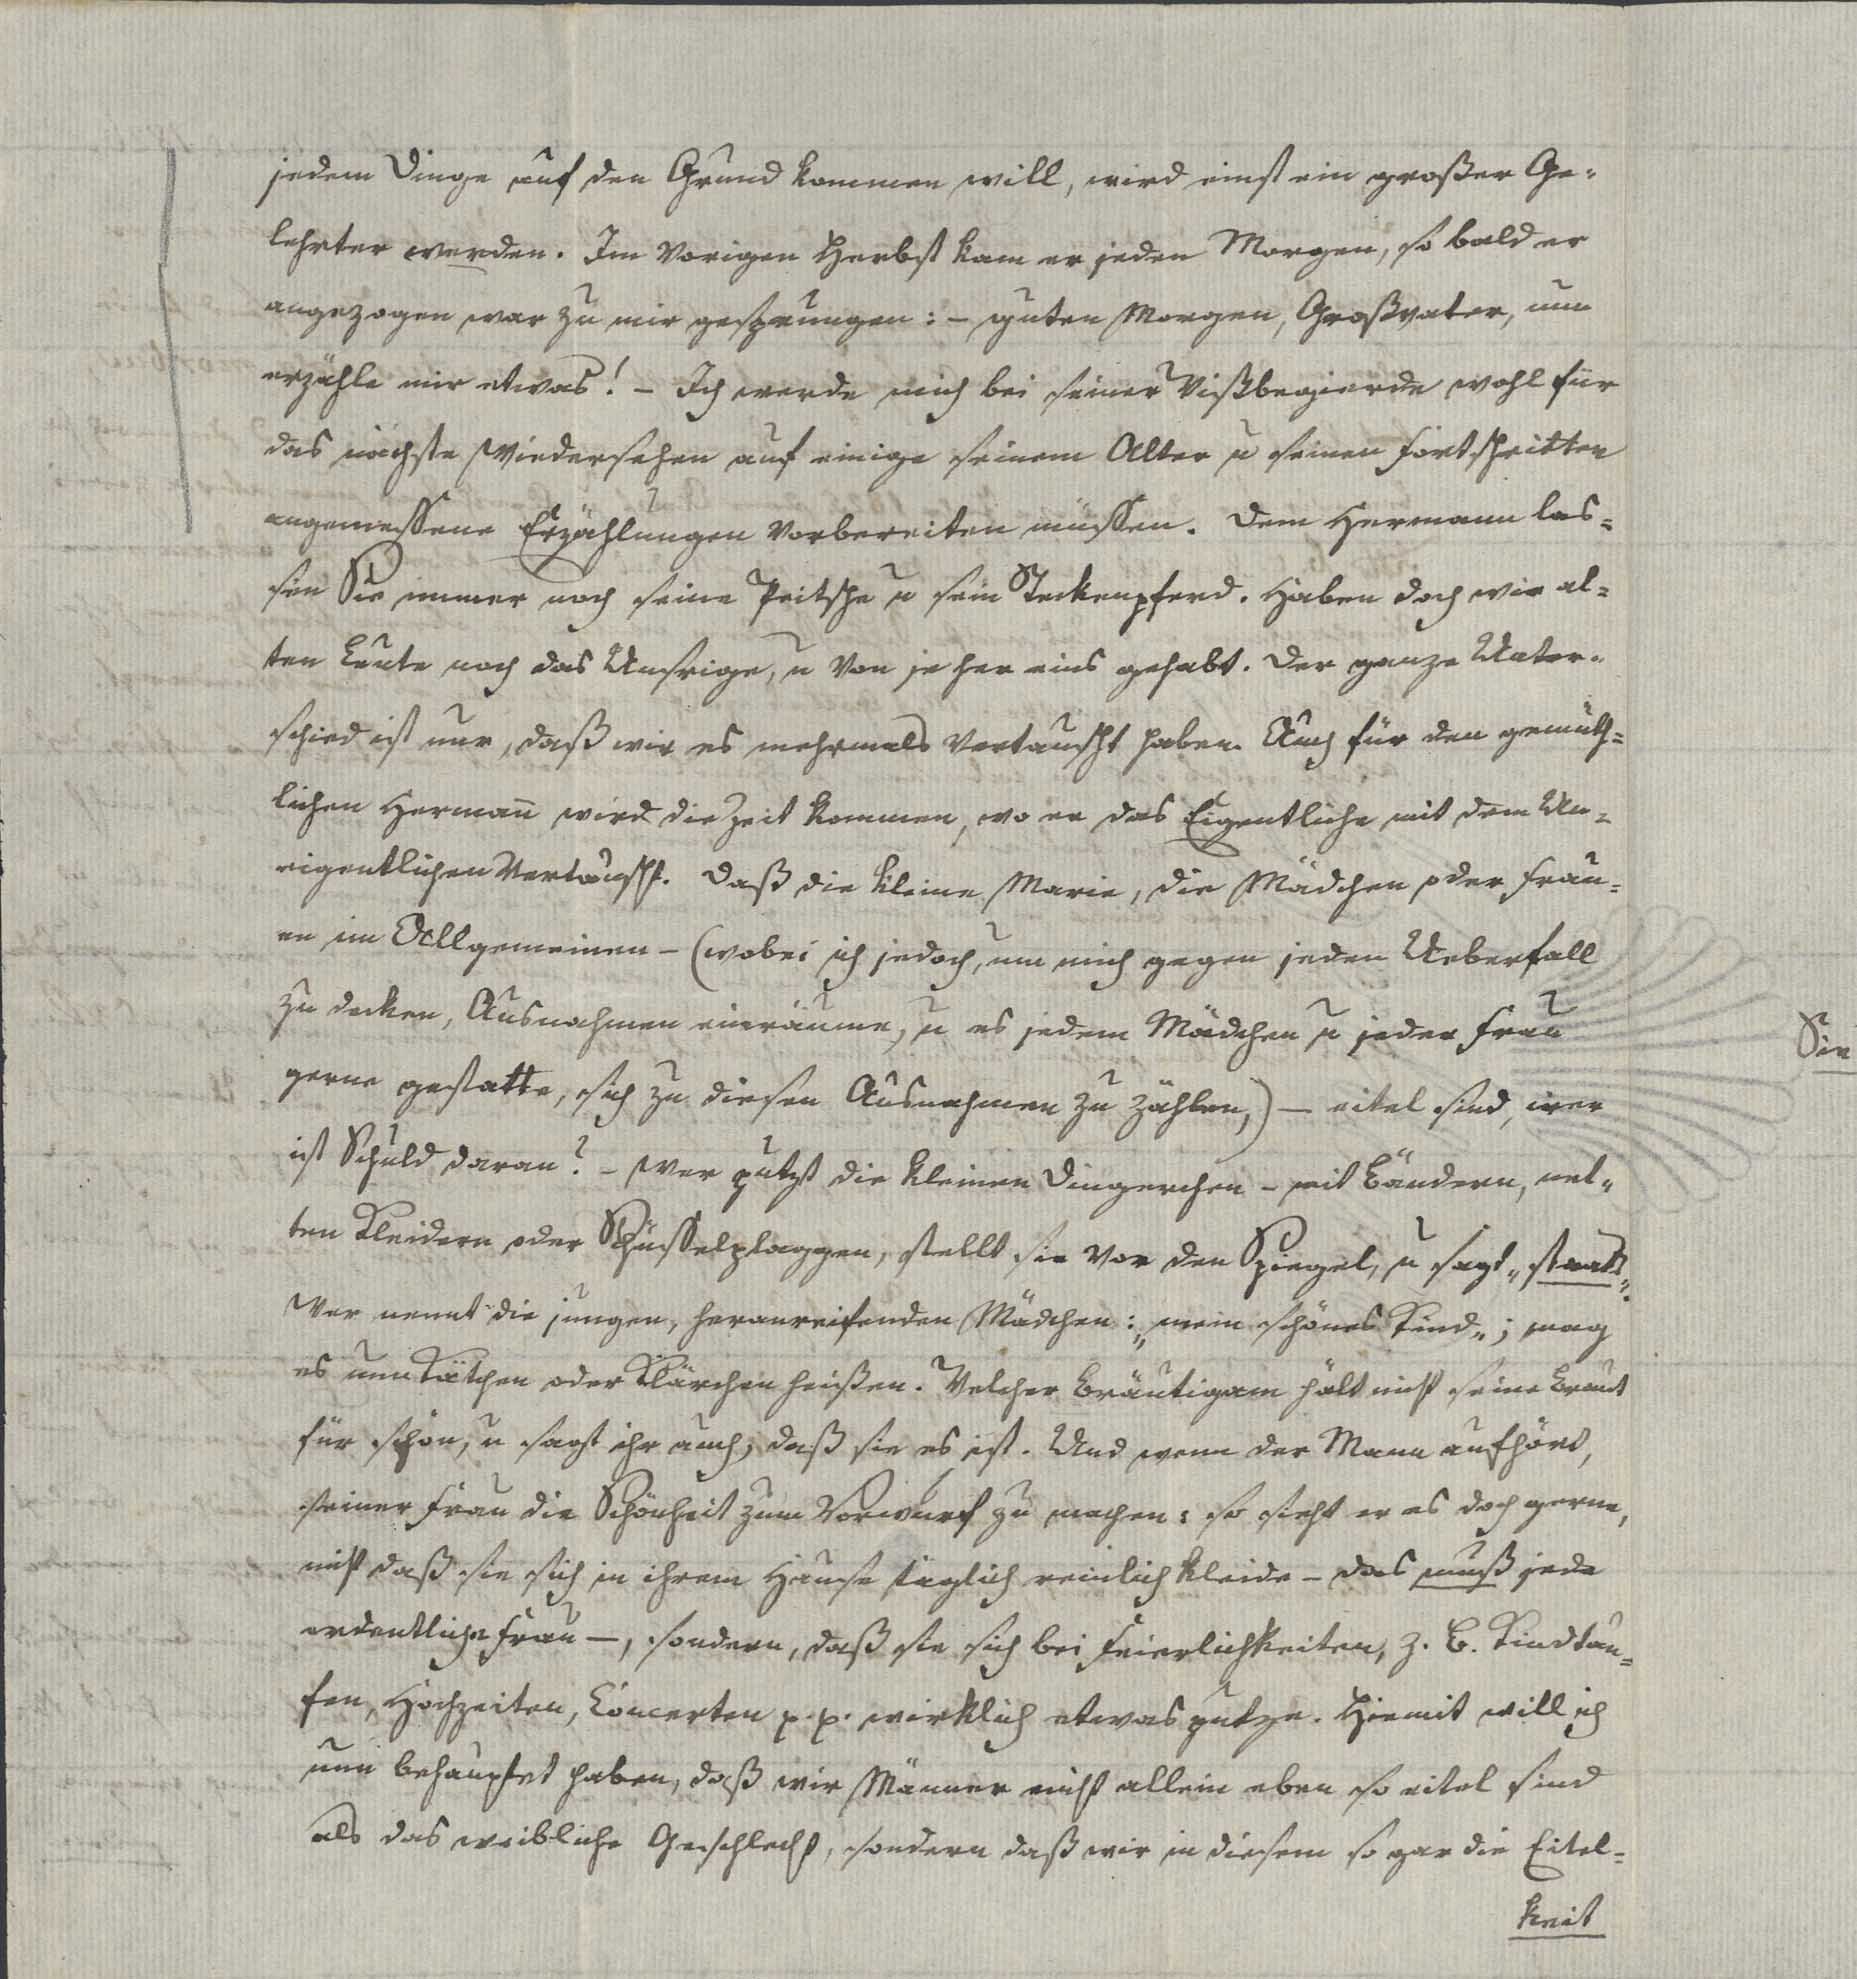 jedem Dinge auf den Grund kommen will, wird einst ein großer Ge-
lehrter werden. Im vorigen Herbst kam er jeden Morgen, so bald er
angezogen war zu mir gesprungen: – guten Morgen, Großvater, nun
erzähle mir etwas! – Ich werde mich bei seiner Wißbegierde wohl für
das nächste Wiedersehen auf einige seinem Alter u seinen Fortschritten
angemessene Erzählungen vorbereiten müssen. Dem Hermann las-
sen Sie immer noch seine Peitsche u sein Steckenpferd. Haben doch wir al-
ten Leute noch das Unsrige, u von je her eins gehabt. Der ganze Unter-
schied ist nur, daß wir es mehrmals vertauscht haben. Auch für den gemüth-
lichen Herman̄ wird die Zeit kommen, wo er das Eigentliche mit dem Un-
eigentlichen vertauscht. Daß die kleine Marie, die Mädchen oder Frau-
en im Allgemeinen – (wobei ich jedoch, um mich gegen jeden Ueberfall
zu decken, Ausnahmen einräume, u es jedem Mädchen u jeder Frau
gerne gestatte, sich zu diesen Ausnahmen zu zählen,) – eitel sind, wer
ist Schuld daran? – Wer putzt die kleinen Dingerchen – mit Bändern, net-
ten Kleidern oder Schüsselplaggen, stellt sie vor den Spiegel, u sagt „staats“.
Wer nennt die jungen, heranreifenden Mädchen: „mein schönes Kind“; mag
es nun Kätchen oder Klärchen heißen. Welcher Bräutigam hält nicht seine Braut
für schön, u sagt ihr auch, daß sie es ist. Und wenn der Mann aufhört,
seiner Frau die Schönheit zum Vorwurf zu machen: so sieht er es doch gerne,
nicht daß sie sich in ihrem Hause täglich reinlich kleide – das muß jede
ordentliche Frau –, sondern, daß sie sich bei Feierlichkeiten, z. B. Kindtau-
fen, Hochzeiten, Concerten p. p. wirklich etwas putze. Hiemit will ich
nun behauptet haben, daß wir Männer nicht allein eben so eitel sind
als das weibliche Geschlecht, sondern daß wir in diesem so gar die Eitel-
keit
Sie